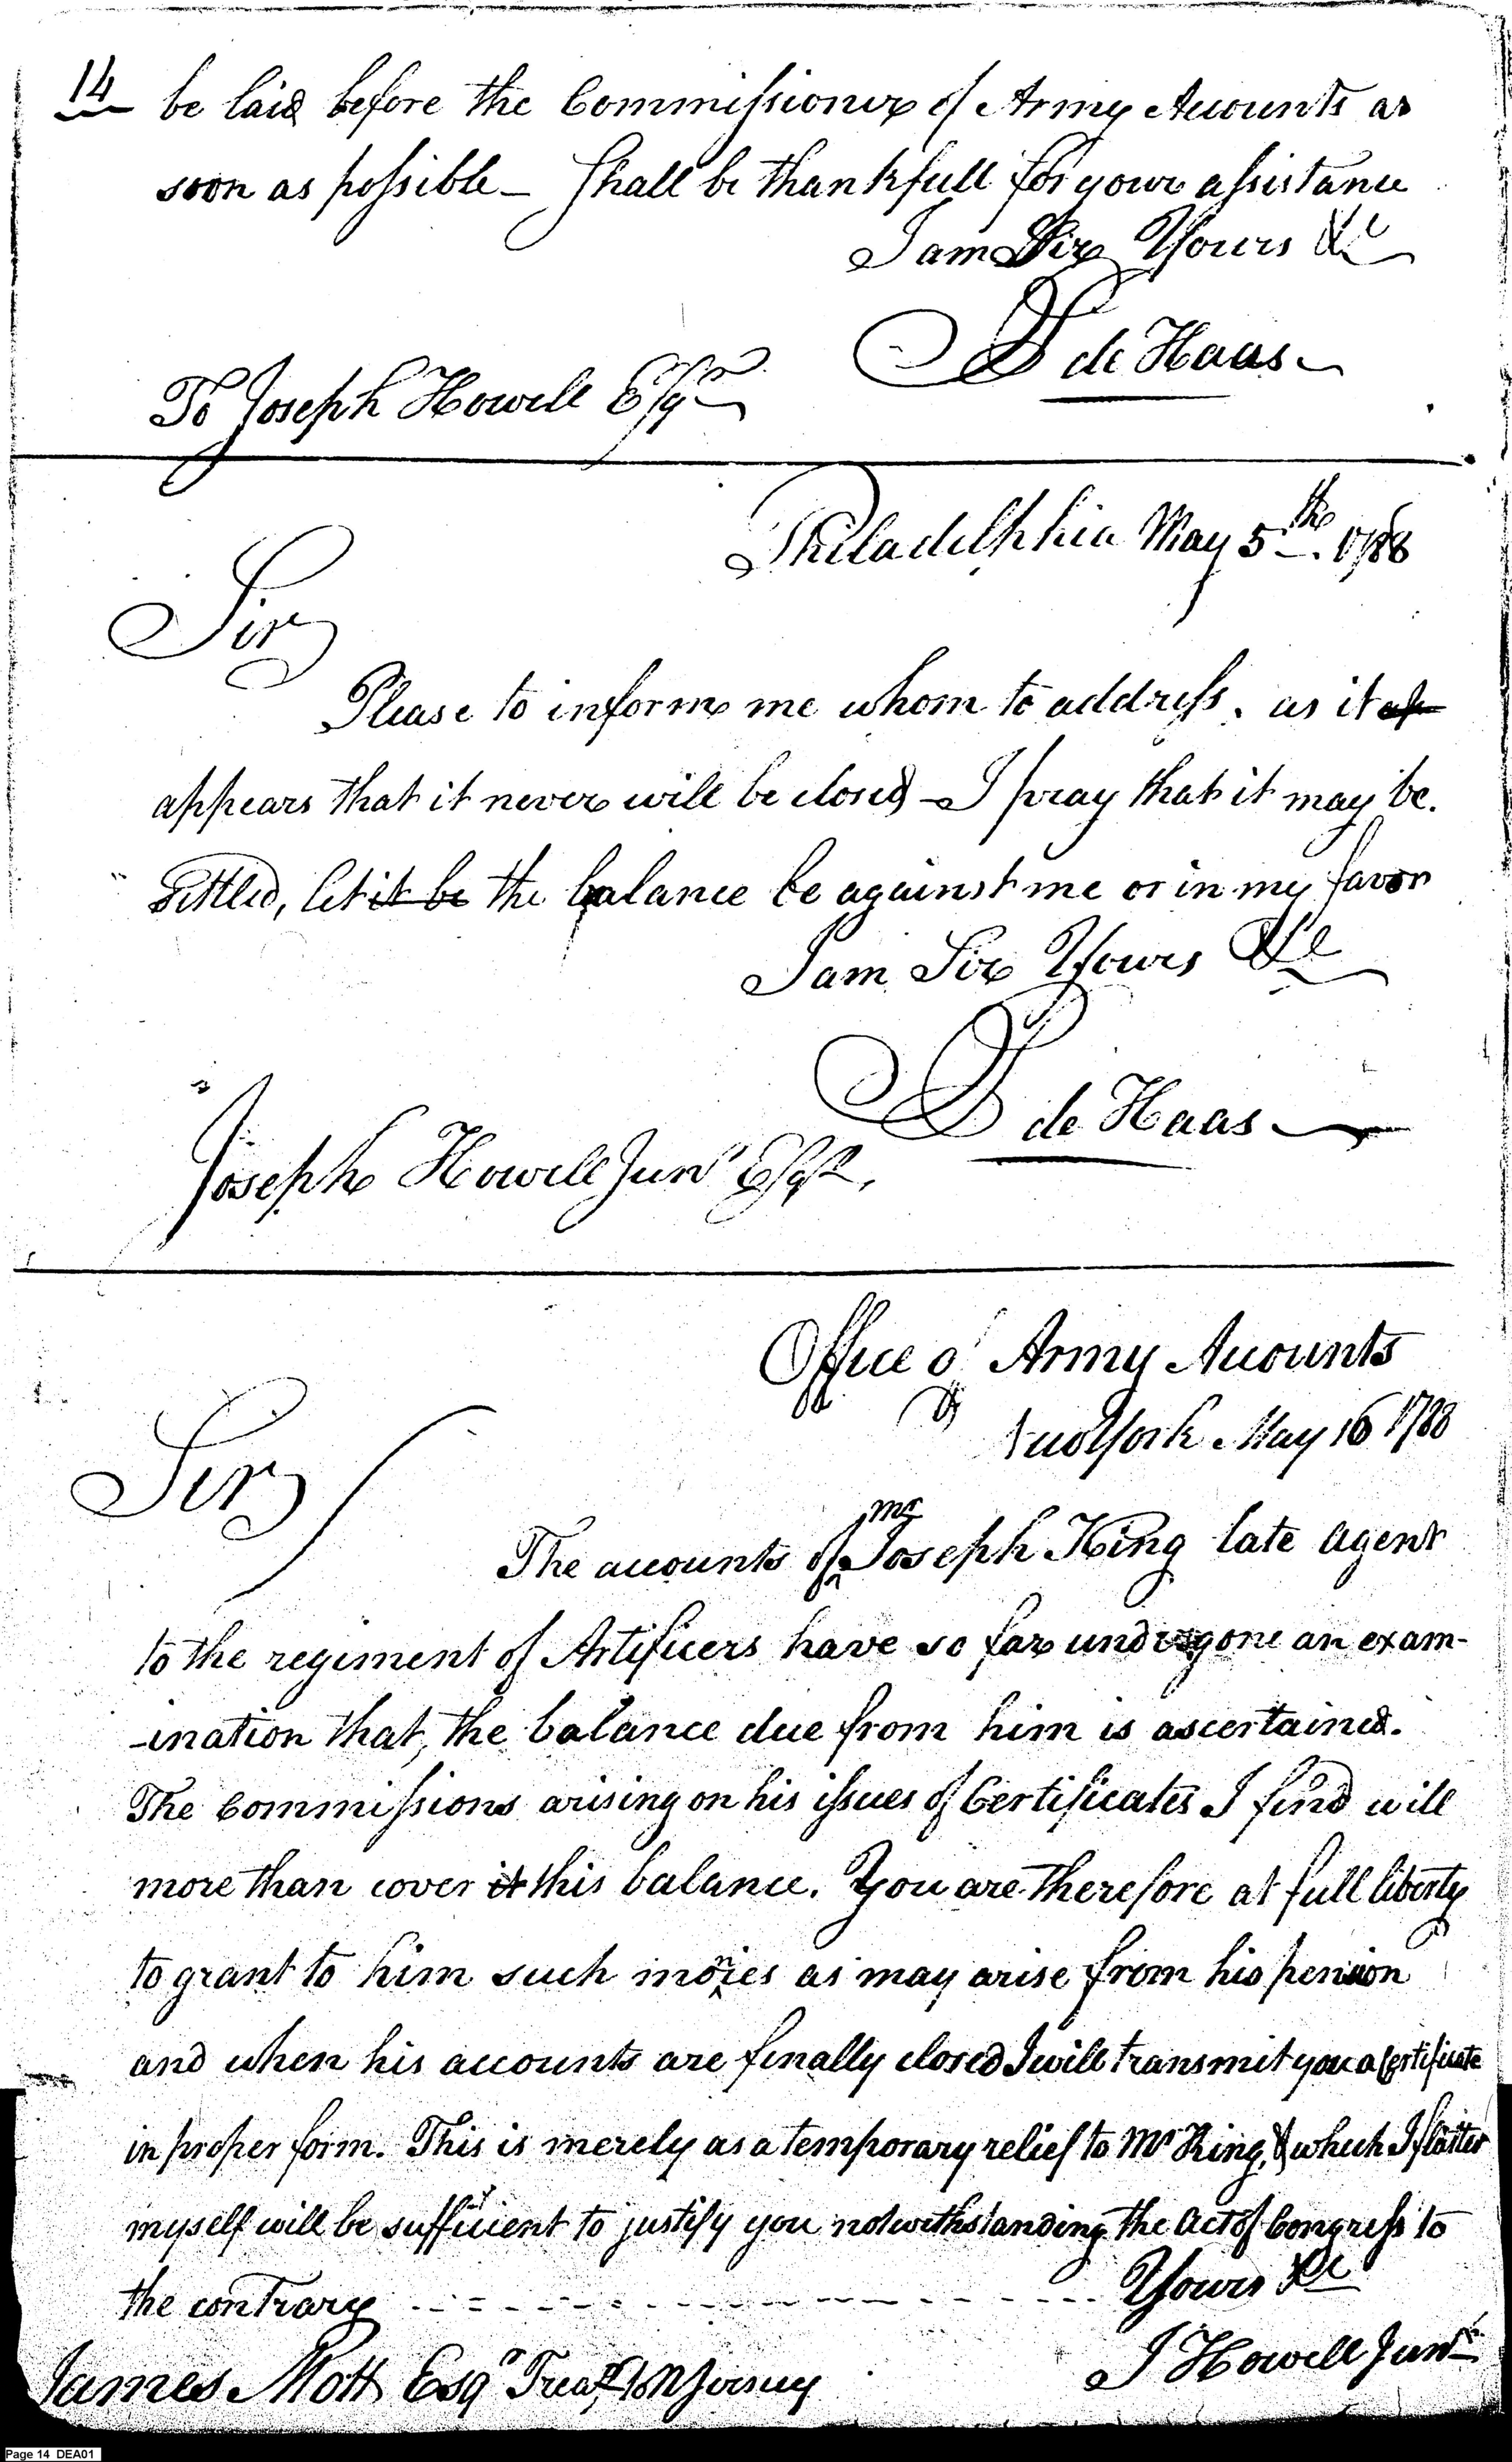 14 be laid before the Commissioner of Army Accounts as
soon as possible — Shall be thankfull for your assistance
I am Sir Yours &c
D de Haas
To Joseph Howell Esqr
Philadelphia May 5th. 1788
Sir
Please to inform me whom to address. as it ap
appears that it never will be closed — I pray that it may be.
settled, let it be the balance be against me or in my favor
I am Sir Yours &c
D de Haas
Joseph Howell Junr Esqr.
Office of Army Accounts
New York May 16 1788
Sir
The accounts of mr Joseph King late agent
to the regiment of Artificers have so far undergone an exam-
-ination that, the balance due from him is ascertained.
The Commissions arising on his issues of Certificates I find will
more than cover it this balance. You are therefore at full liberty
to grant to him such monies as may arise from his pension
and when his accounts are finally closed I will transmit you a Certificate
in proper form. This is merely as a temporary relief to Mr King, & which I flatter
myself will be sufficient to justify you notwithstanding the Act of Congress to
the contrary Yours &c
J Howell Junr
James Mott Esqr Treasr N Jersey
Page 14 DEA01